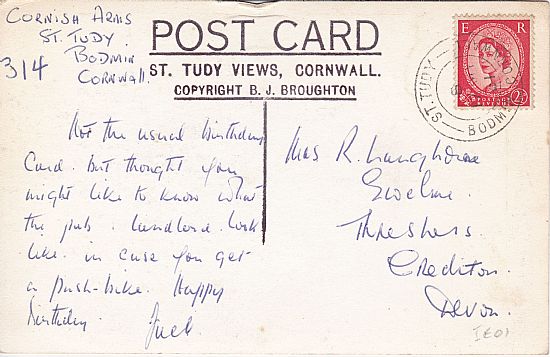 CORNISH ARMS
ST. TUDY.
BODMIN
CORNWALL.
314
POST CARD
ST. TUDY VIEWS, CORNWALL.
COPYRIGHT B. J. BROUGHTON
E R
POSTAGE
2½
ST. TUDY
BODMIN
Not the usual birthday
Card. but thought you
might like to know what
the pub. landlord look
like. in case you get
a push-bike. Happy
birthday. Jack.
Mrs R.
Ewelme.
Threshers.
Crediton.
Devon.